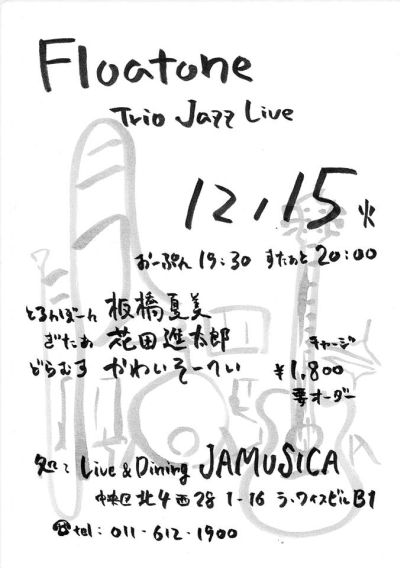 Floatone
Trio Jazz Live
12,15 火
おーぷん 19:30 すたぁと 20:00
とろんぼーん 板橋夏美
ぎたぁ 花田進太郎
どらむす かわいそーへい
チャージ
¥1,800
要オーダー
処：Live & Dining JAMUSICA
中央区北4西28 1-16 ラ・ワイスビルB1
☎tel: 011-612-1900